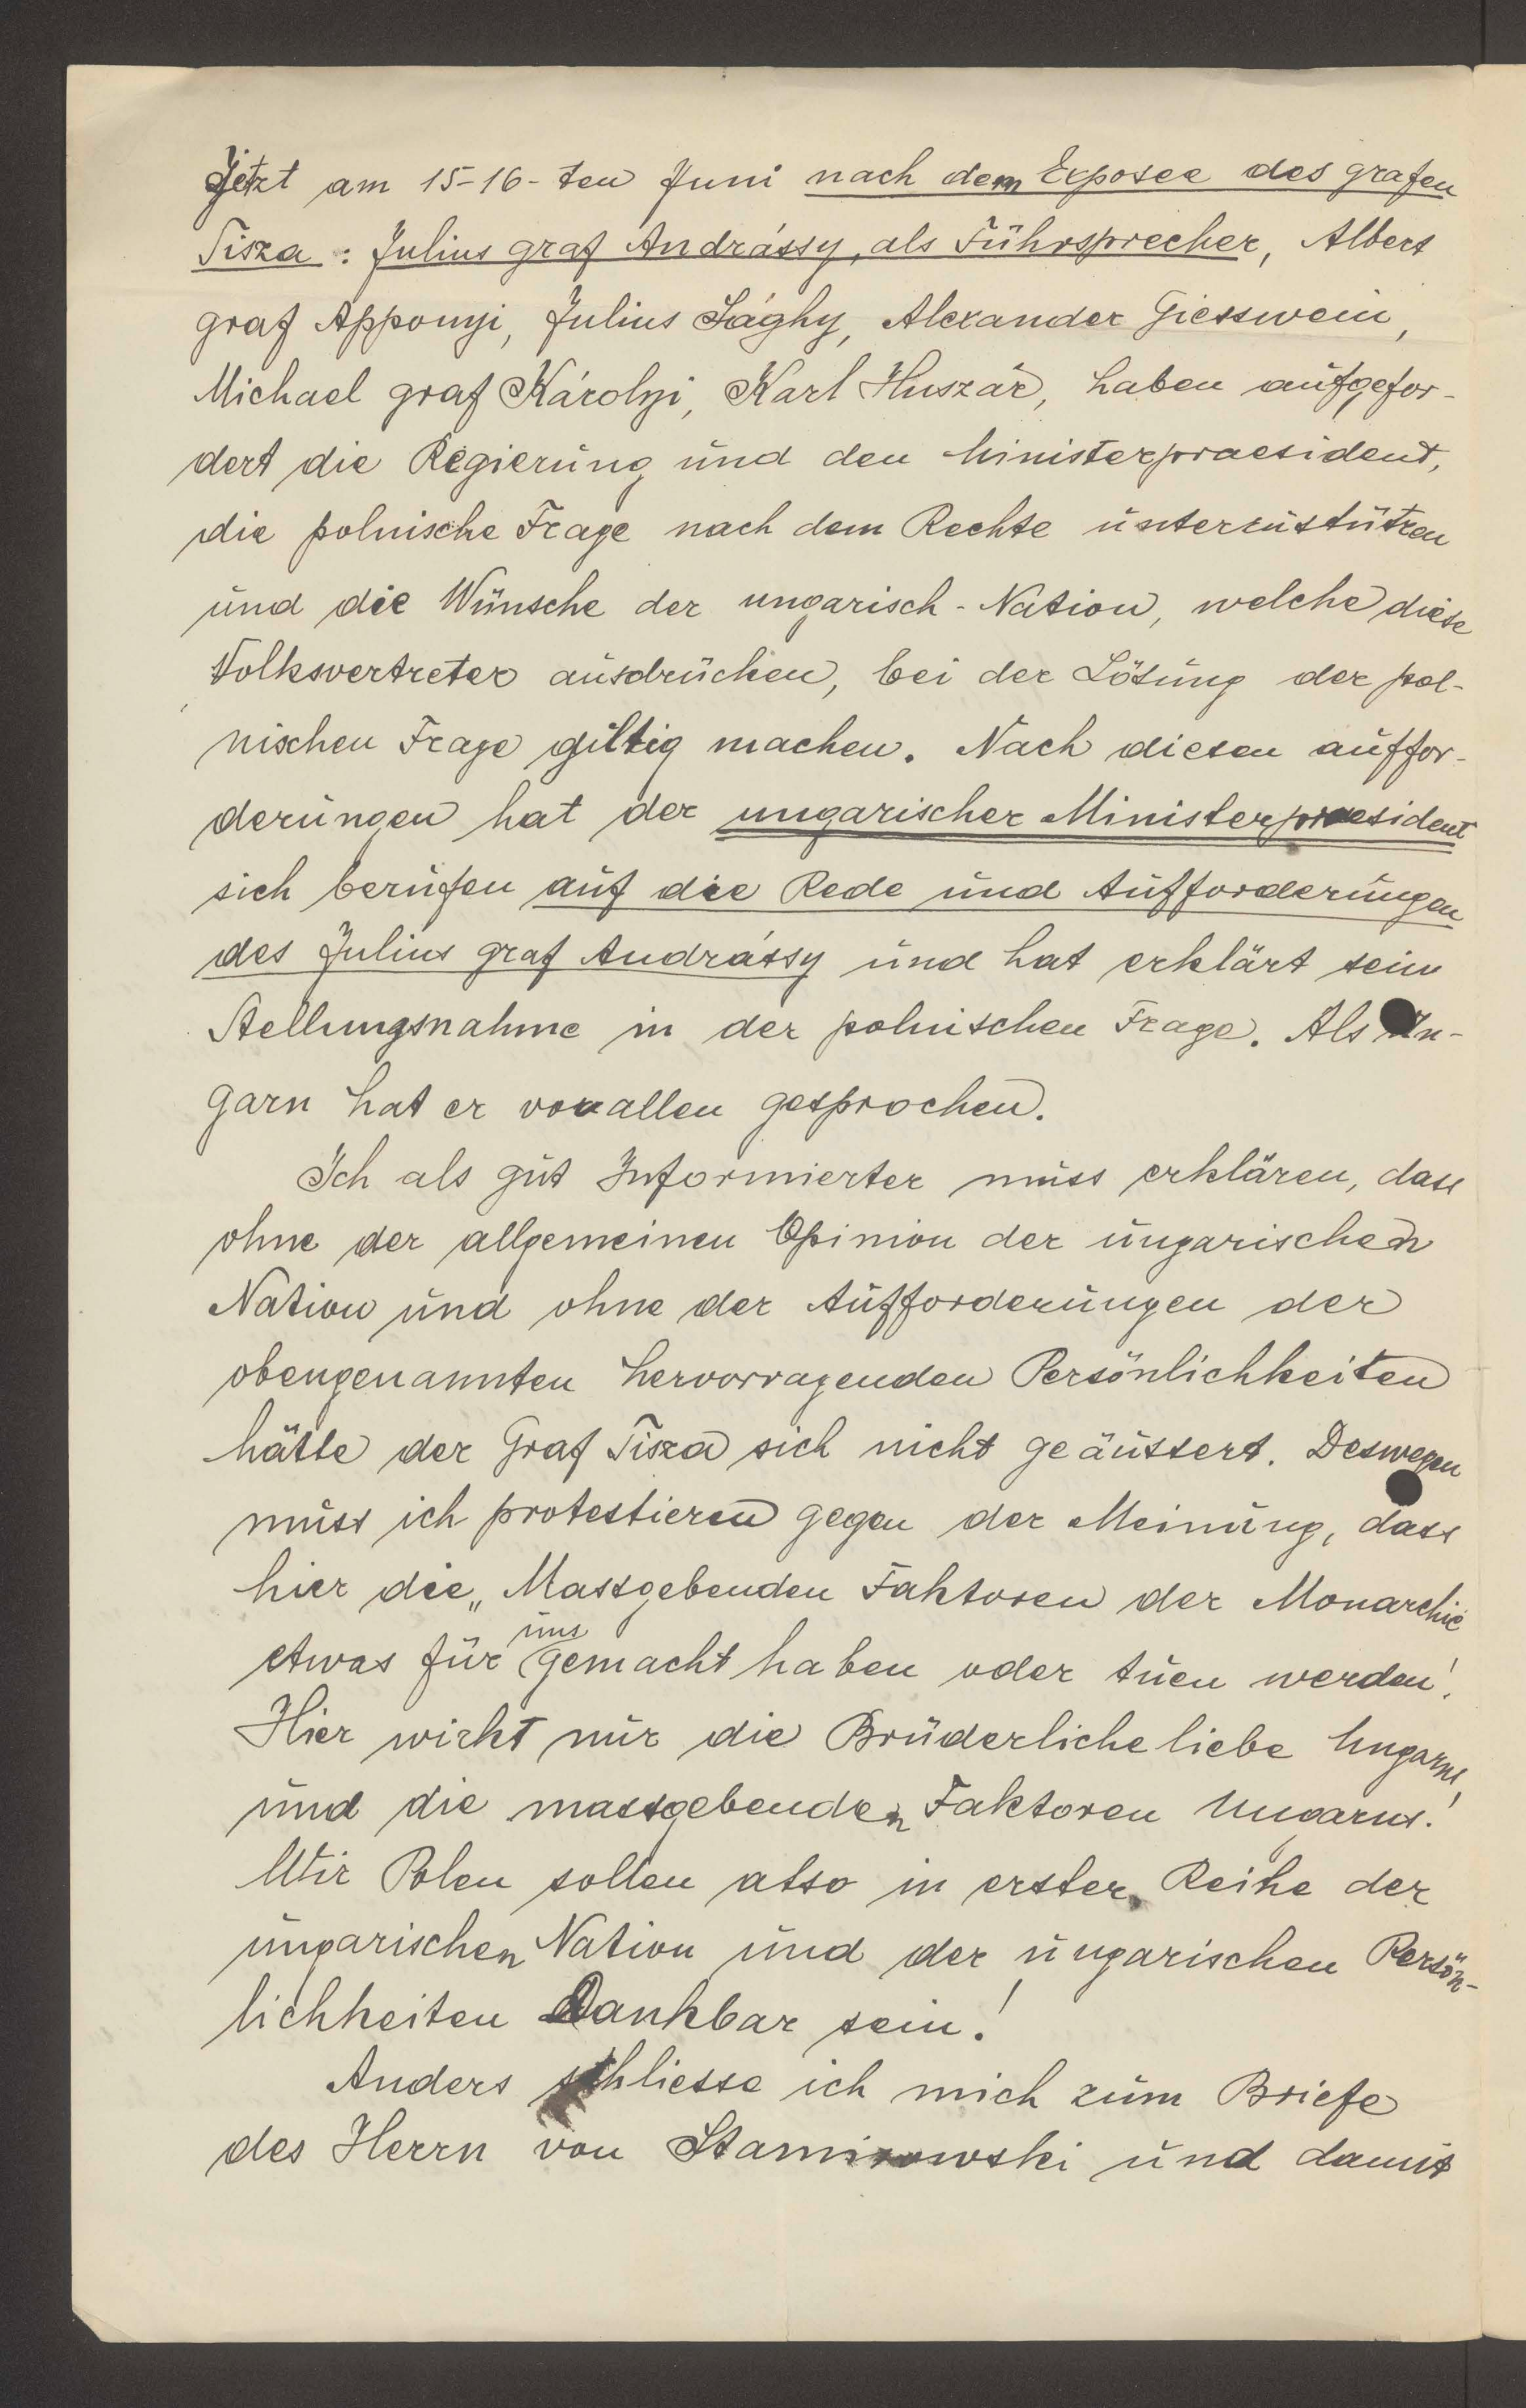 Jetzt am 15-16-ten Juni nach dem Exposee des grafen
Tisza: Julius graf Andrássy, als Führsprecher, Albert
graf Apponyi, Julius Sághy, Alexander Giesswein,
Michael graf Károlyi, Karl Huszár, haben aufgefor-
dert die Regierung und den Ministerpraesident,
die polnische Frage nach dem Rechte
und die Wünsche der ungarisch-Nation, welche diese
Volksvertreter ausdrücken, bei der Lösung der pol-
nischen Frage giltig machen. Nach diesen auffor-
derungen hat der ungarischer Ministerpraesident
sich berufen auf die Rede und Aufforderungen
des Julius graf Andrássy und hat erklärt sein
Stellungsnahme in der polnischen Frage. Als Un-
garn hat er vor allen gesprochen.
Ich als gut Informierter muss erklären, dass
ohne der allgemeinen Opinion der ungarischen
Nation und ohne der Aufforderungen der
obengenannten hervorragenden Persönlichkeiten
hätte der Graf Tisza sich nicht geäussert. Deswegen
muss ich protestieren gegen der Meinung, dass
hier die „Massgebenden Faktoren der Monarchie
etwas für uns gemacht haben oder tuen werden!
Hier wirkt nur die Brüderliche liebe Ungarns,
und die massgebenden Faktoren Ungarns!
Wir Polen sollen also in erster Reihe der
ungarischen Nation und der ungarischen Persön-
lichkeiten Dankbar sein!
Anders schliesse ich mich zum Briefe
des Herrn von Stamirowski und damit